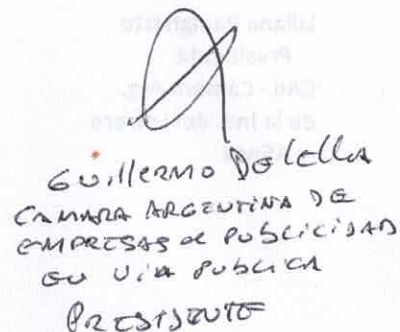 Guillermo DeLella
CAMARA ARGENTINA DE
EMPRESAS de PUBLICIDAD
EN VIA PUBLICA
PRESIDENTE